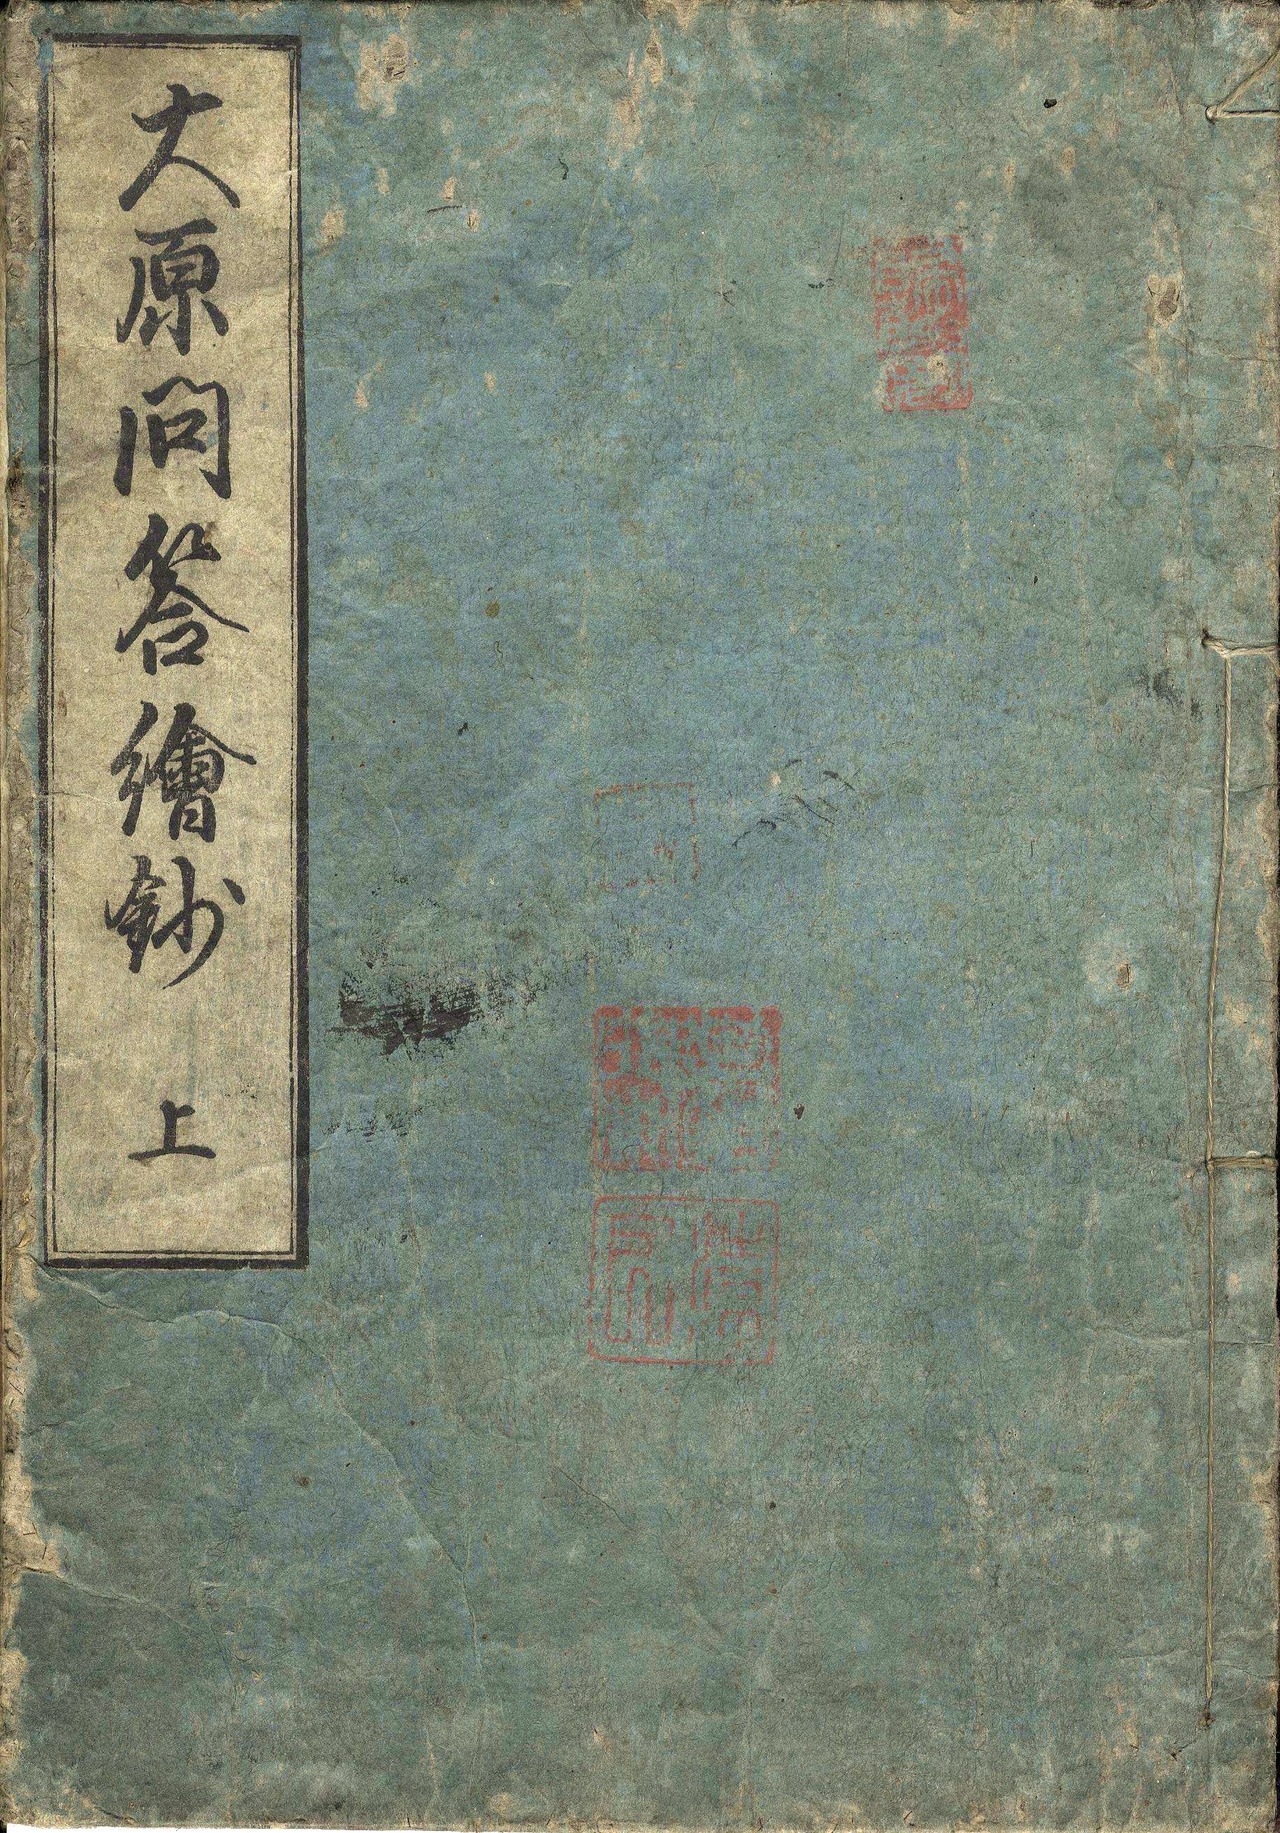 大原問答繪鈔 上